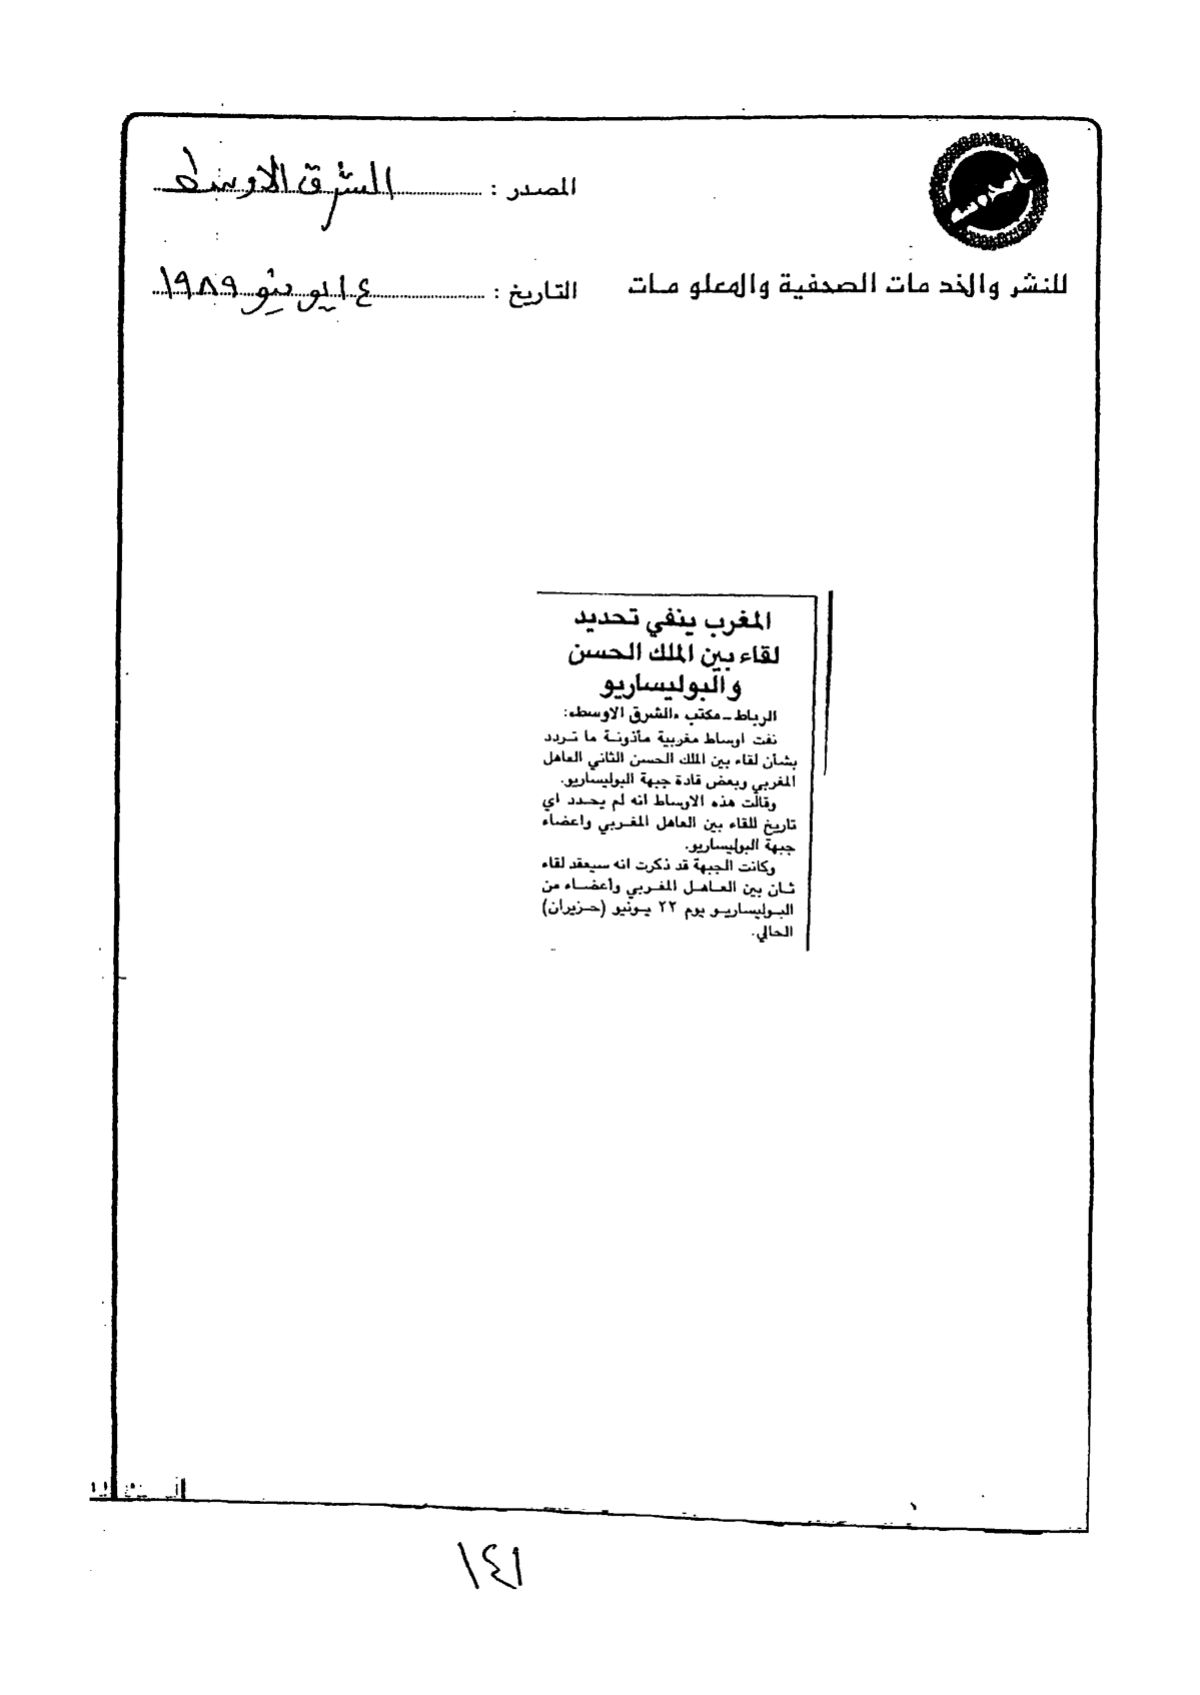 المصدر : الشرق الاوسط
للنشر والخدمات الصحفية والمعلومات
التاريخ : ١٤ يونيو ١٩٨٩
المغرب ينفي تحديد
لقاء بين الملك الحسن
والبوليساريو
الرباط ـ مكتب «الشرق الاوسط»:
نفت اوساط مغربية مأذونة ما تردد
بشأن لقاء بين الملك الحسن الثاني العاهل
المغربي وبعض قادة جبهة البوليساريو.
وقالت هذه الاوساط انه لم يحدد اي
تاريخ للقاء بين العاهل المغربي واعضاء
جبهة البوليساريو.
وكانت الجبهة قد ذكرت انه سيعقد لقاء
ثان بين العاهل المغربي وأعضاء من
البوليساريو يوم ٢٢ يونيو (حزيران)
الحالي.
١٤١